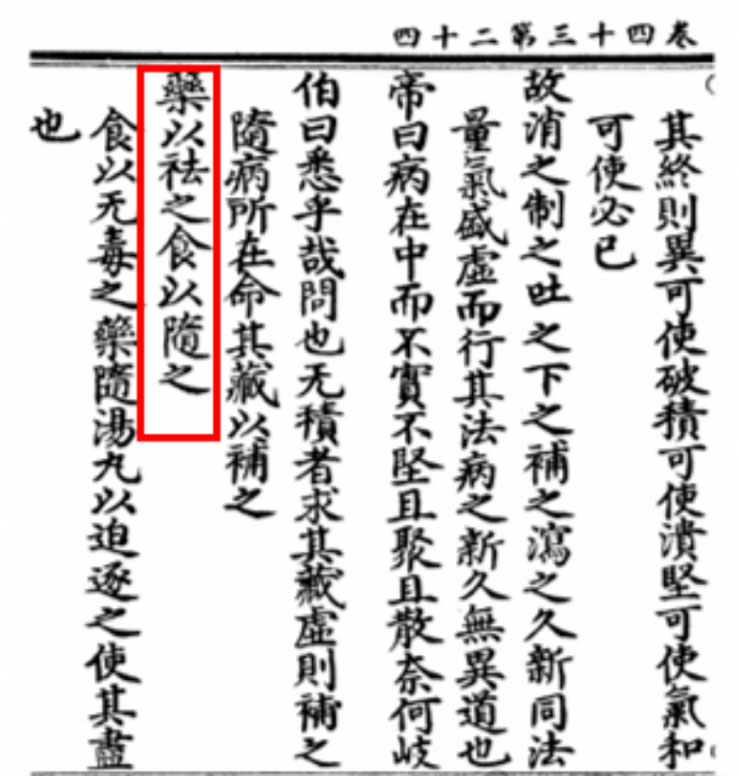 卷四十三第二十四
其終則異可使破積可使潰堅可使氣和
可使必已
故消之制之吐之下之補之瀉之久新同法
量氣盛虛而行其法病之新久無異道也
帝曰病在中而不實不堅且聚且散奈何岐
伯曰悉乎哉問也无積者求其藏虛則補之
隨病所在命其藏以補之
藥以祛之食以隨之
食以无毒之藥隨湯丸以迫逐之使其盡
也